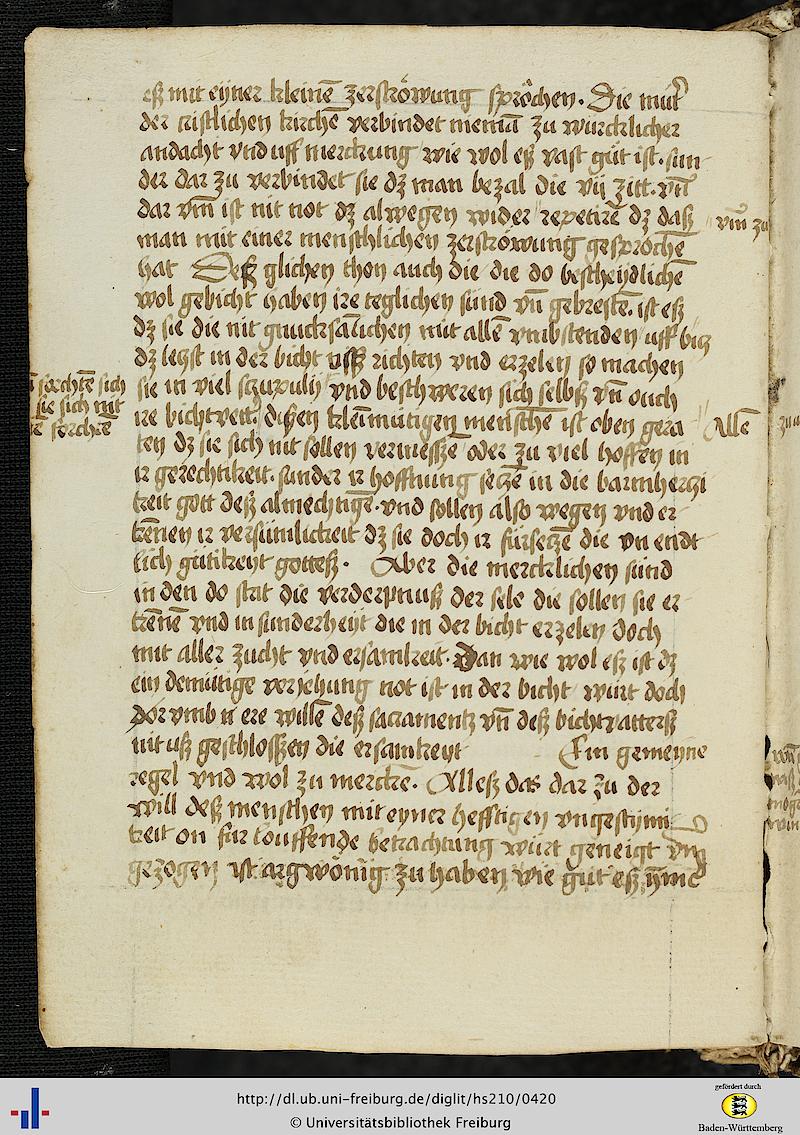 eß mit eyner kleinē zerströwung spröchen. Die mut̄
der cristlichen kirchē verbindet niemā zu würcklicher
andacht vnd uff merckung wie wol eß vast gůt ist. sun
der dar zu verbindet sie dz man bezal die vij zitt. vn̄
dar vm̄ ist nit not dz al wegen wider repetirē dz daß
man mit einer menschlichen zerströwung gesprochē
hat Deß glichen thon auch die die do bescheydlichē
wol gebicht haben ire teglichen sünd vn̄ gebrestē. ist eß
dz sie die nit gnucksālichen mit allē vmbstenden uff biß
dz letzst in der bicht vß richten vnd erzelen so machen
sie in viel scrupulij vnd beschweren sich selbß vn̄ ouch
ire bichtvett. dißen kleinmutigen menschē ist oben gera
ten dz sie sich nit sollen vermessē oder zu viel hoffen in
ir gerechtikeit. sunder ir hoffnung setzē in die barmhertzi
keit gott deß almechtigē. vnd sollen also wegen vnd er
kēnen ir versümlickeit dz sie doch ir fürsetzē die vn endt
lich gütikeyt gotteß. Aber die mercklichen sünd
in den do stat die verderpnuß der sele die sollen sie er
kēnē vnd in sunderheyt die in der bicht erzelen doch
mit aller zucht vnd ersamkeit. Dan wie wol eß ist dz
ein demütige verjehung not ist in der bicht würt doch
dor vmb ere willē deß sacramentz vn̄ deß bichtvatterß
nit uß geschlossen die ersamkeyt Ein gemeyne
regel vnd wol zu merckē. Alleß das dar zu der
will deß menschen mit eyner hefftigen vngestymi
keit on für louffende betrachtung würt geneigt vn̄
gezogen ist argwönig zu haben wie gut eß
vm̄ zu
forchtē sich
sie sich nit
forchtē
Allē
http://dl.ub.uni-freiburg.de/diglit/hs210/0420
© Universitätsbibliothek Freiburg
gefördert durch
Baden-Württemberg